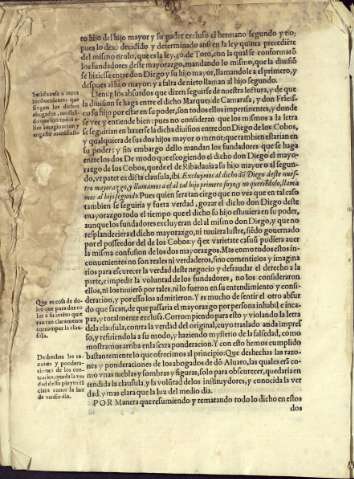 to hijo del hijo mayor y su padre excluso el hermano segundo y tio,
pues lo dexo decidido y determinado assi en la ley quinta precedente
del mismo titulo, que es la ley, 40 de Toro, con la qual se conformarō
los fundadores deste mayorazgo, mandando lo mismo, que la diuisiō
se hiziesse entre don Diego y su hijo mayor, llamandole a el primero, y
despues al hijo mayor y a falta de nieto llaman al hijo segundo.
Tiene q̃ los absurdos que dizen seguirse de nuestra letura, y de que
la diuision se haga entre el dicho Marques de Camarasa, y don
su hijo por estar en su poder, son todos ellos impertinentes, y donde
se vee y entiende bien; pues no consideran que los mismos a la letra
se seguirian en hazerse la dicha diuision entre don Diego de los Cobos,
y qualquiera de sus dos hijos mayor o menor que tambien estarian en
su poder; y sin embargo dello mandan los fundadores que se haga
entre los dos De modo que escogiendo el dicho don Diego el mayo-
razgo de los Cobos, quede el de Ribadauia a su hijo mayor o al segun-
do, vt patet ex dicta clausula, ibi. Excluymos al dicho dō Diego deste nues-
tro mayorazgo, y llamamos a el al tal hijo primero
al hijo segundo. Pues quien sera tan ciego que no vea que en tal caso
tambien se seguiria y fuera verdad, gozar el dicho don Diego deste
mayorazgo todo el tiempo que el dicho su hijo estuuiera en su poder,
aunque los fundadores excluyeran del al mismo don Diego, y que no
resplandeciera el dicho mayorazgo, ni tuuiera lustre, siēdo gouernado
por el posseedor del de los Cobos; y q̃ en variete casus pudiera auer
la misma confusion de los dos mayorazgos. Mas como todos estos in-
conuenientes no son reales ni verdaderos, sino comenticios y imagina
rios para escurecer la verdad deste negocio y defraudar el derecho a la
parte, e impedir la voluntad de los fundadores, no los consideraron
ellos, ni los tuuieron por tales, ni lo fueron en su entendimiento y consi-
deracion, y por esso los admitieron. Y es mucho de sentir el otro absur
do que fixan, de que passaria el mayorazgo por persona inhabil e inca-
paz, y totalmente exclusa. Corrompiendo para esto y violando la letra
dela clausula, contra la verdad del original, cuyo traslado anda impres
so, y refiriendola a su modo, y haziendo mysterio de la falsedad, como
mostramos arriba en la sexta ponderacion. Y con esto hemos cumplido
bastantemente lo que ofrecimos al principio: Que deshechas las razo-
nes y ponderaciones de los abogados de dō Aluaro, las quales erā co-
mo vnas nieblas y sombras y figuras, solo para obscurecer, quedaria en
tendida la clausula, y la volūtad delos instituydores, y conocida la ver
dad, y mas clara que la luz del medio dia.
POR Manera que resumiendo y rematando todo lo dicho en estos
dos
Que es cosa de
Deshechas las ra-
zones y pondera-
ciones de los con-
trarios, queda la ver
clara como la luz
de medio dia.